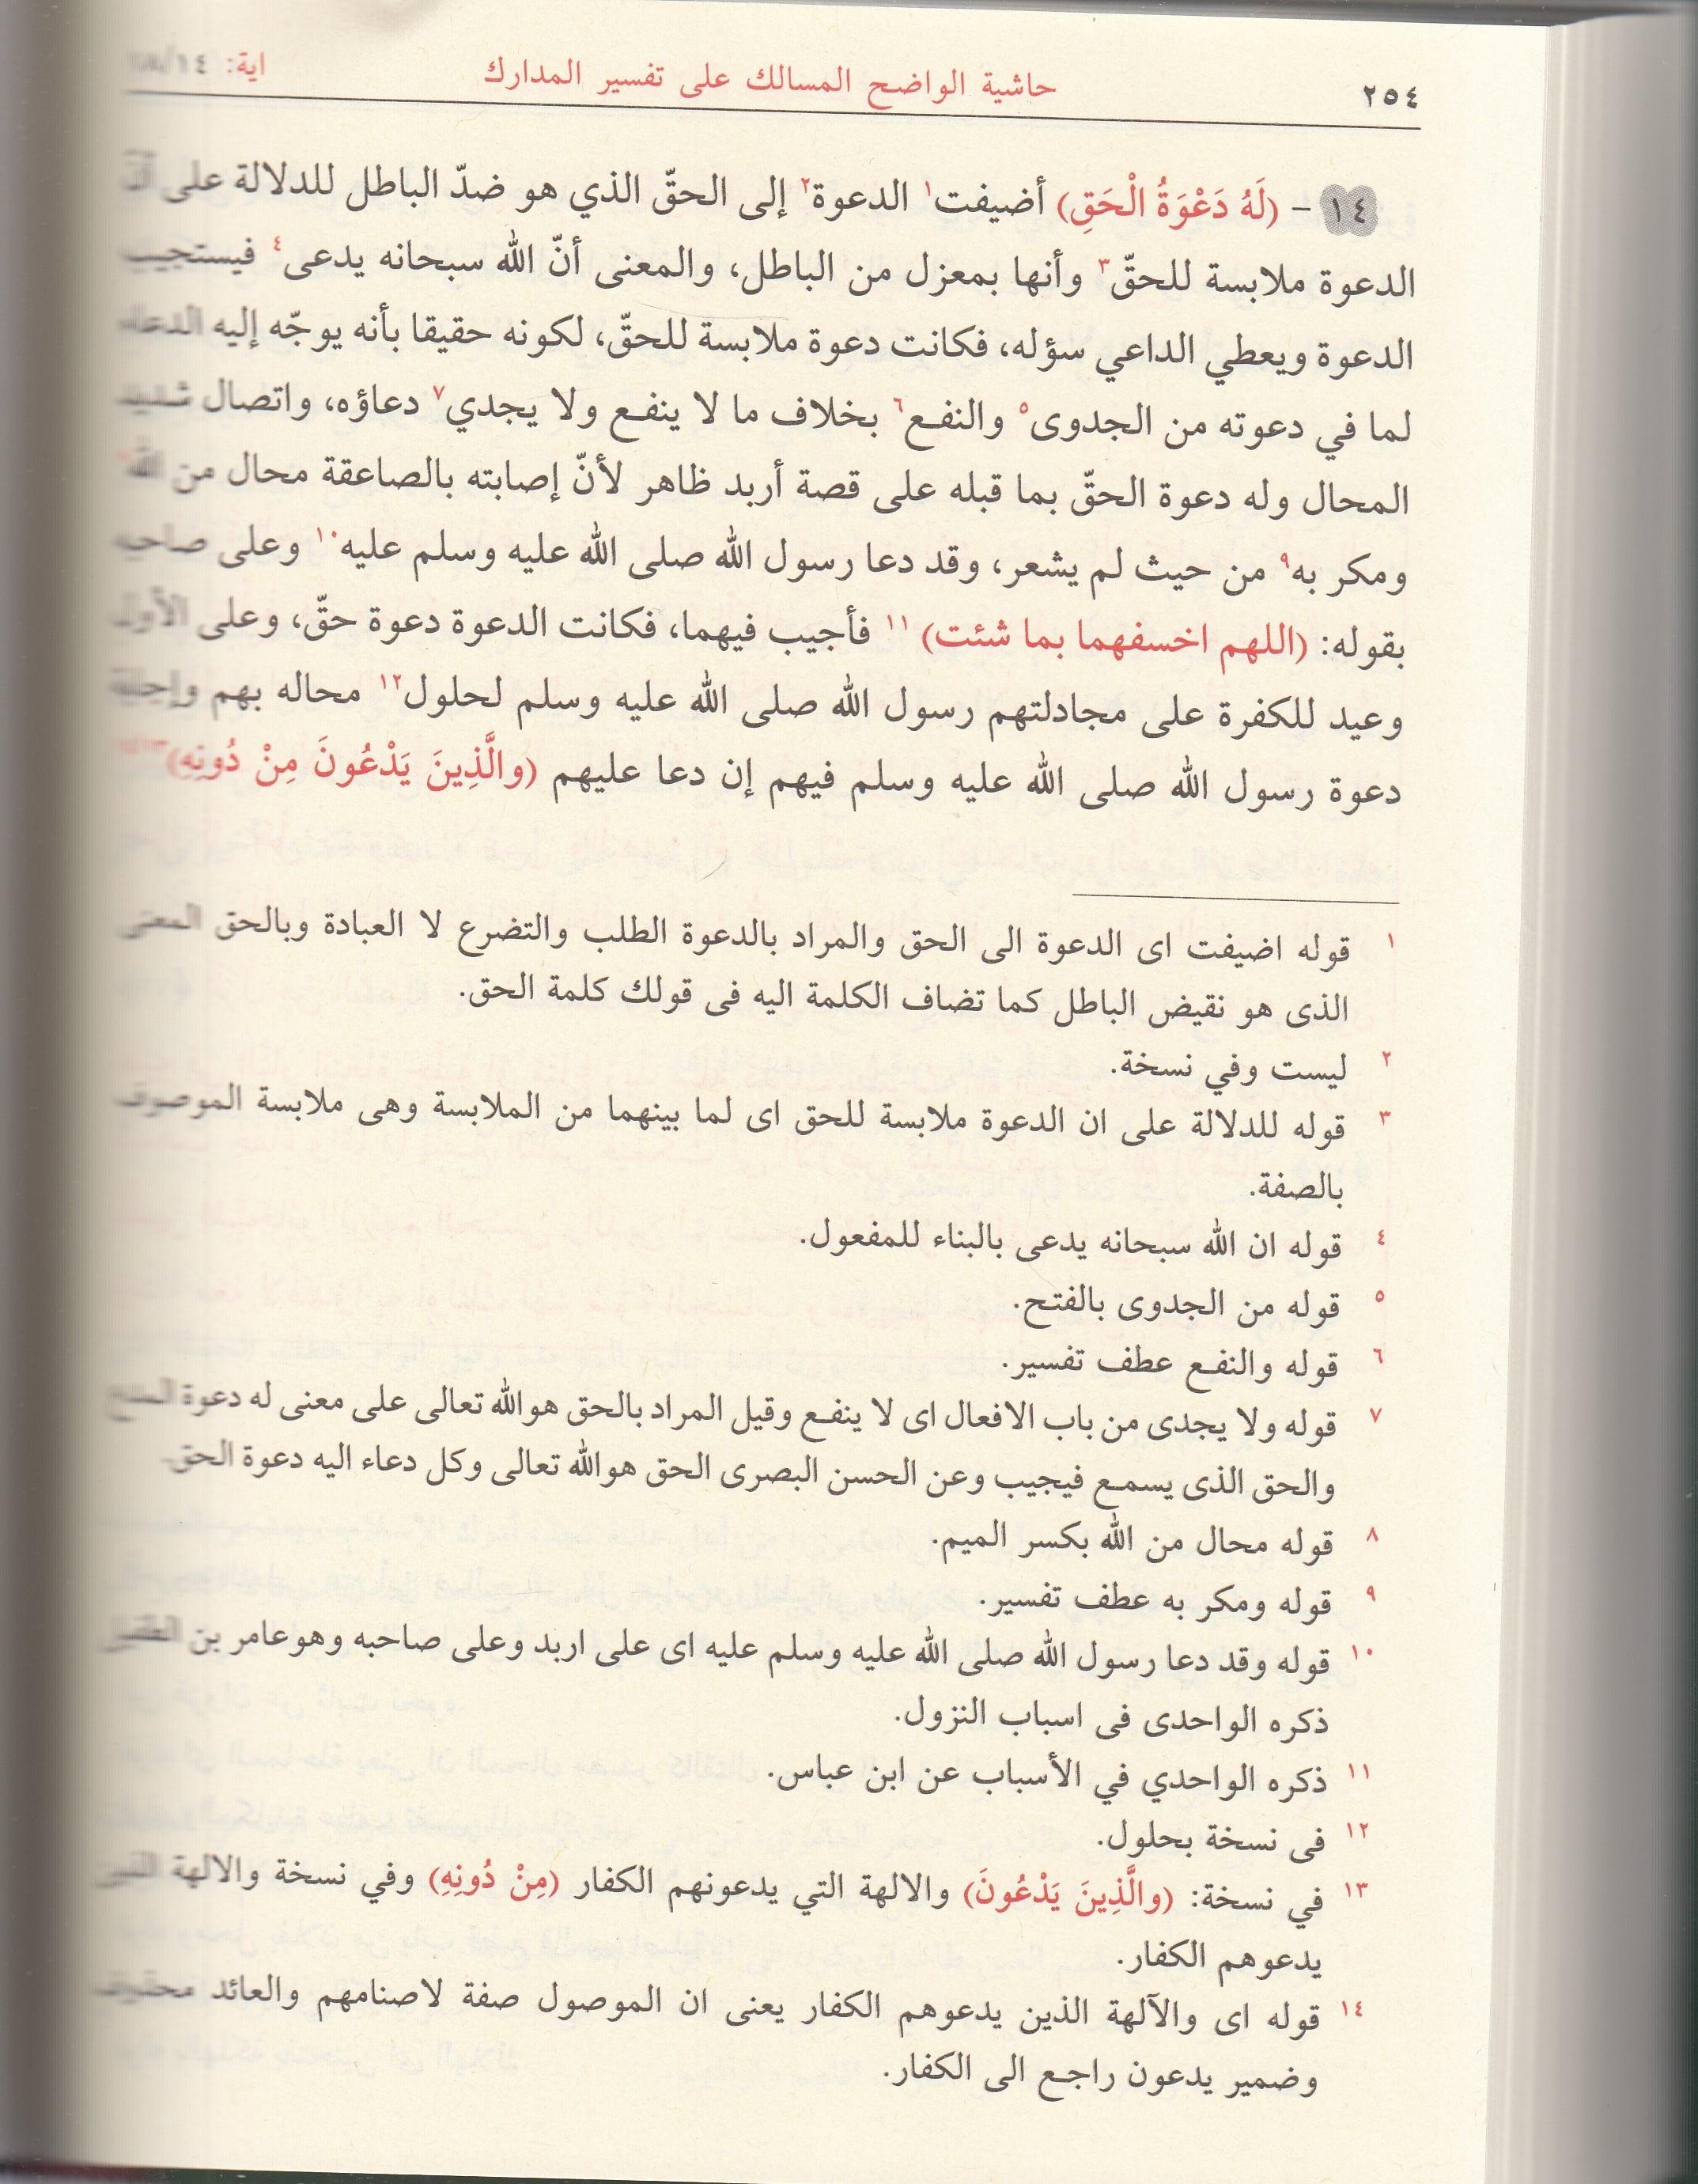 ٢٥٤ حاشية الواضح المسالك على تفسير المدارك اية: ١٤
١٤ – (لَهُ دَعْوَةُ الْحَقِ) أضيفت١ الدعوة٢ إلى الحقّ الذي هو ضدّ الباطل للدلالة على أنّ
الدعوة ملابسة للحقّ٣ وأنها بمعزل من الباطل، والمعنى أنّ الله سبحانه يدعى٤ فيستجيب
الدعوة ويعطي الداعي سؤله، فكانت دعوة ملابسة للحقّ، لكونه حقيقا بأنه يوجّه إليه الدعاء
لما في دعوته من الجدوى٥ والنفع٦ بخلاف ما لا ينفع ولا يجدي٧ دعاؤه، واتصال شديد
المحال وله دعوة الحقّ بما قبله على قصة أربد ظاهر لأنّ إصابته بالصاعقة محال من الله
ومكر به٩ من حيث لم يشعر، وقد دعا رسول الله صلى الله عليه وسلم عليه١٠ وعلى صاحبه
بقوله: (اللهم اخسفهما بما شئت) ١١ فأجيب فيهما، فكانت الدعوة دعوة حقّ، وعلى الأول
وعيد للكفرة على مجادلتهم رسول الله صلى الله عليه وسلم لحلول١٢ محاله بهم وإجابة
دعوة رسول الله صلى الله عليه وسلم فيهم إن دعا عليهم (والَّذِينَ يَدْعُونَ مِنْ دُونِهِ)
١ قوله اضيفت اى الدعوة الى الحق والمراد بالدعوة الطلب والتضرع لا العبادة وبالحق المعنى
الذى هو نقيض الباطل كما تضاف الكلمة اليه فى قولك كلمة الحق.
٢ ليست وفي نسخة.
٣ قوله للدلالة على ان الدعوة ملابسة للحق اى لما بينهما من الملابسة وهى ملابسة الموصوف
بالصفة.
٤ قوله ان الله سبحانه يدعى بالبناء للمفعول.
٥ قوله من الجدوى بالفتح.
٦ قوله والنفع عطف تفسير.
٧ قوله ولا يجدى من باب الافعال اى لا ينفع وقيل المراد بالحق هوالله تعالى على معنى له دعوة
والحق الذى يسمع فيجيب وعن الحسن البصرى الحق هوالله تعالى وكل دعاء اليه دعوة الحق.
٨ قوله محال من الله بكسر الميم.
٩ قوله ومكر به عطف تفسير.
١٠ قوله وقد دعا رسول الله صلى الله عليه وسلم عليه اى على اربد وعلى صاحبه وهوعامر بن الطفيل
ذكره الواحدى فى اسباب النزول.
١١ ذكره الواحدي في الأسباب عن ابن عباس.
١٢ فى نسخة بحلول.
١٣ في نسخة: (والَّذِينَ يَدْعُونَ) والالهة التي يدعونهم الكفار (مِنْ دُونِهِ) وفي نسخة والالهة التى
يدعوهم الكفار.
١٤ قوله اى والآلهة الذين يدعوهم الكفار يعنى ان الموصول صفة لاصنامهم والعائد محذوف
وضمير يدعون راجع الى الكفار.